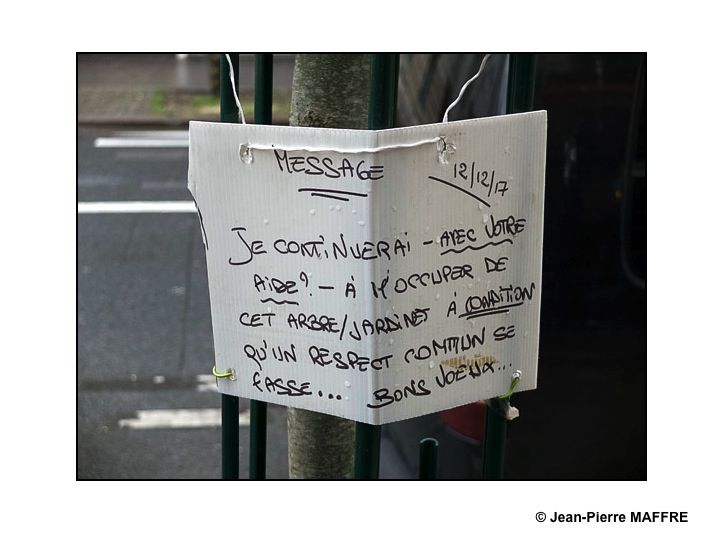 MESSAGE
12/12/17
JE CONTINUERAI - AVEC VOTRE
AIDE? - À M'OCCUPER DE
CET ARBRE/JARDINET À CONDITION
QU'UN RESPECT COMMUN SE
FASSE... BONS VOEUX...
© Jean-Pierre MAFFRE